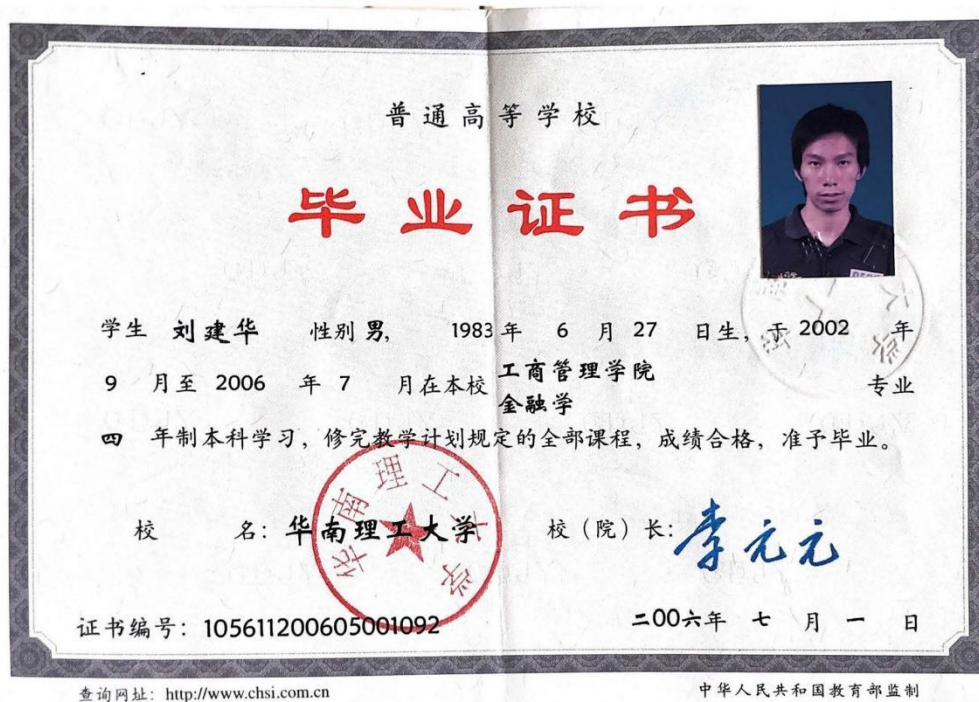 普通高等学校
毕业证书
学生 刘建华 性别 男, 1983 年 6 月 27 日生, 于 2002 年
9 月至 2006 年 7 月在本校 工商管理学院
金融学 专业
四 年制本科学习, 修完教学计划规定的全部课程, 成绩合格, 准予毕业。
华南理工大学
校 名: 华南理工大学 校 (院) 长: 李元元
证书编号: 105611200605001092 二00六年 七 月 一 日
查询网址: http://www.chsi.com.cn 中华人民共和国教育部监制